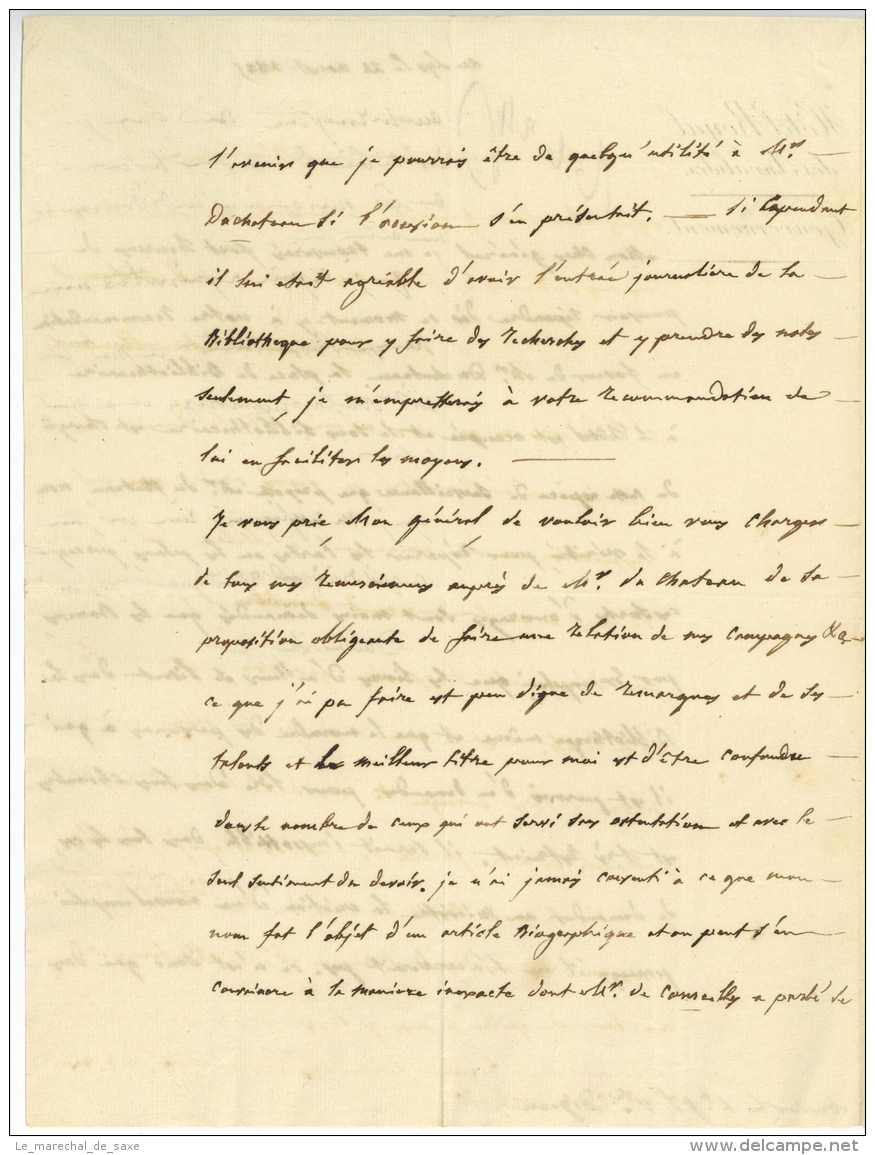 l'avenir que je pourrois être de quelqu'utilité à Mr.
Duchateau si l'occasion s'en présentoit. — si cependant
il lui etoit agréable d'avoir l'entrée journaliere de la
Bibliotheque pour y faire des recherches et y prendre des notes
seulement, je m'empresserois à votre recommandation de
lui en faciliter les moyens. —
Je vous prie Mon général de vouloir bien vous charger
de tous mes remerciemens auprès de Mr. du Chateau de la
proposition obligeante de faire une relation de mes campagnes &a.
ce que j'ai pu faire est peu digne de remarques et de ses
talents et le meilleur titre pour moi est d'être confondu
dans le nombre de ceux qui ont servi sans ostentation et avec le
seul sentiment du devoir. je n'ai jamais consenti à ce que mon
nom fut l'objet d'un article Biographique et on peut s'en
convaincre à la maniere inexacte dont Mr. de a parlé de
Le_marechal_de_saxe
delcampe.net